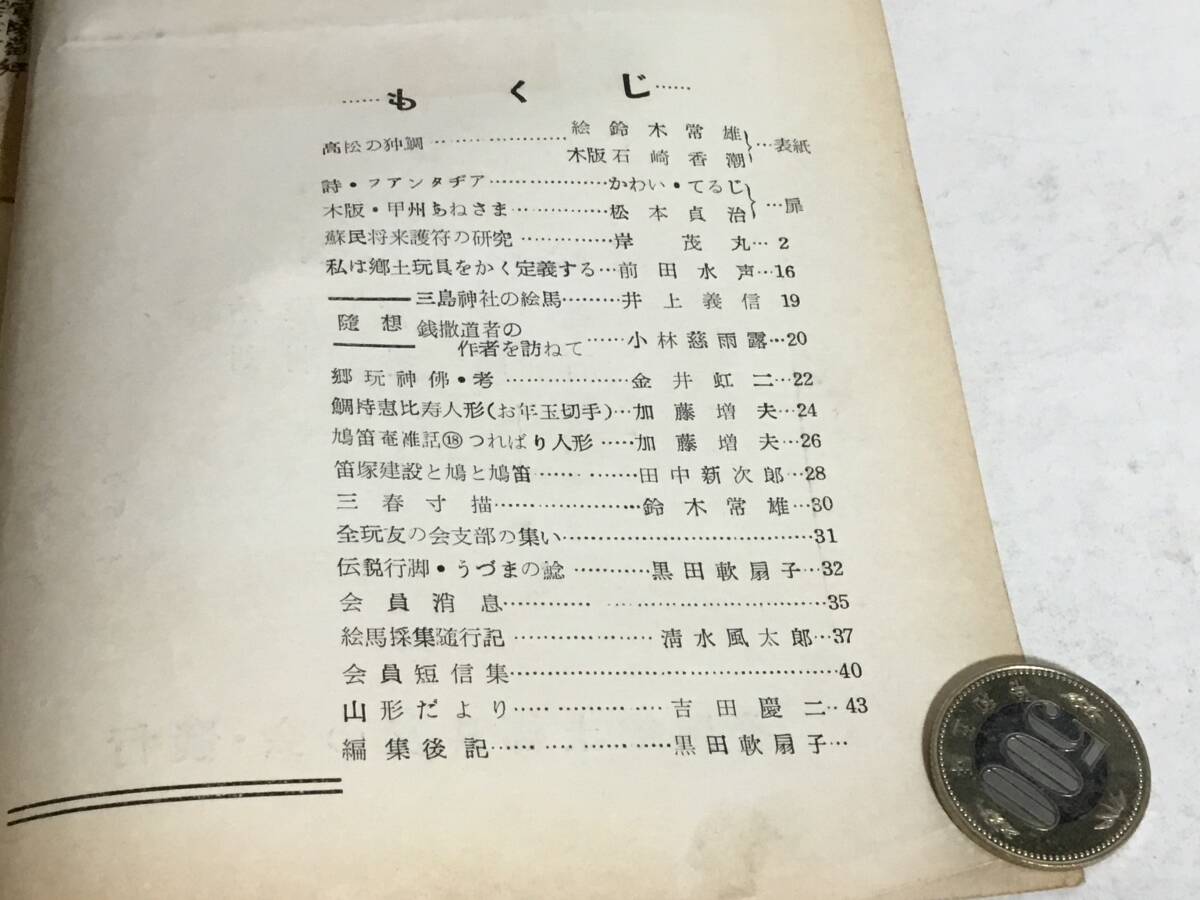 ……もくじ……
高松の狆鯛………………絵 鈴木常雄
木版 石崎香潮}…表紙
詩・フアンタヂア………………かわい・てるじ
木版・甲州あねさま……………松本貞治}…扉
蘇民将来護符の研究……………岸茂丸…2
私は郷土玩具をかく定義する…前田水声…16
三島神社の絵馬………井上義信 19
随想 銭撒道者の
作者を訪ねて……小林慈雨露…20
郷玩神佛・考………………金井虹二…22
鯛持恵比寿人形(お年玉切手)…加藤増夫…24
鳩笛菴雑話⑱つればり人形……加藤増夫…26
笛塚建設と鳩と鳩笛…………田中新次郎…28
三春寸描……………………鈴木常雄…30
全玩友の会支部の集い……………………………………31
伝説行脚・うづまの諗…………黒田軟扇子…32
会員消息……………………………………35
絵馬採集随行記………………清水風太郎…37
会員短信集……………………………………40
山形だより…………………吉田慶二…43
編集後記…………………黒田軟扇子…
500